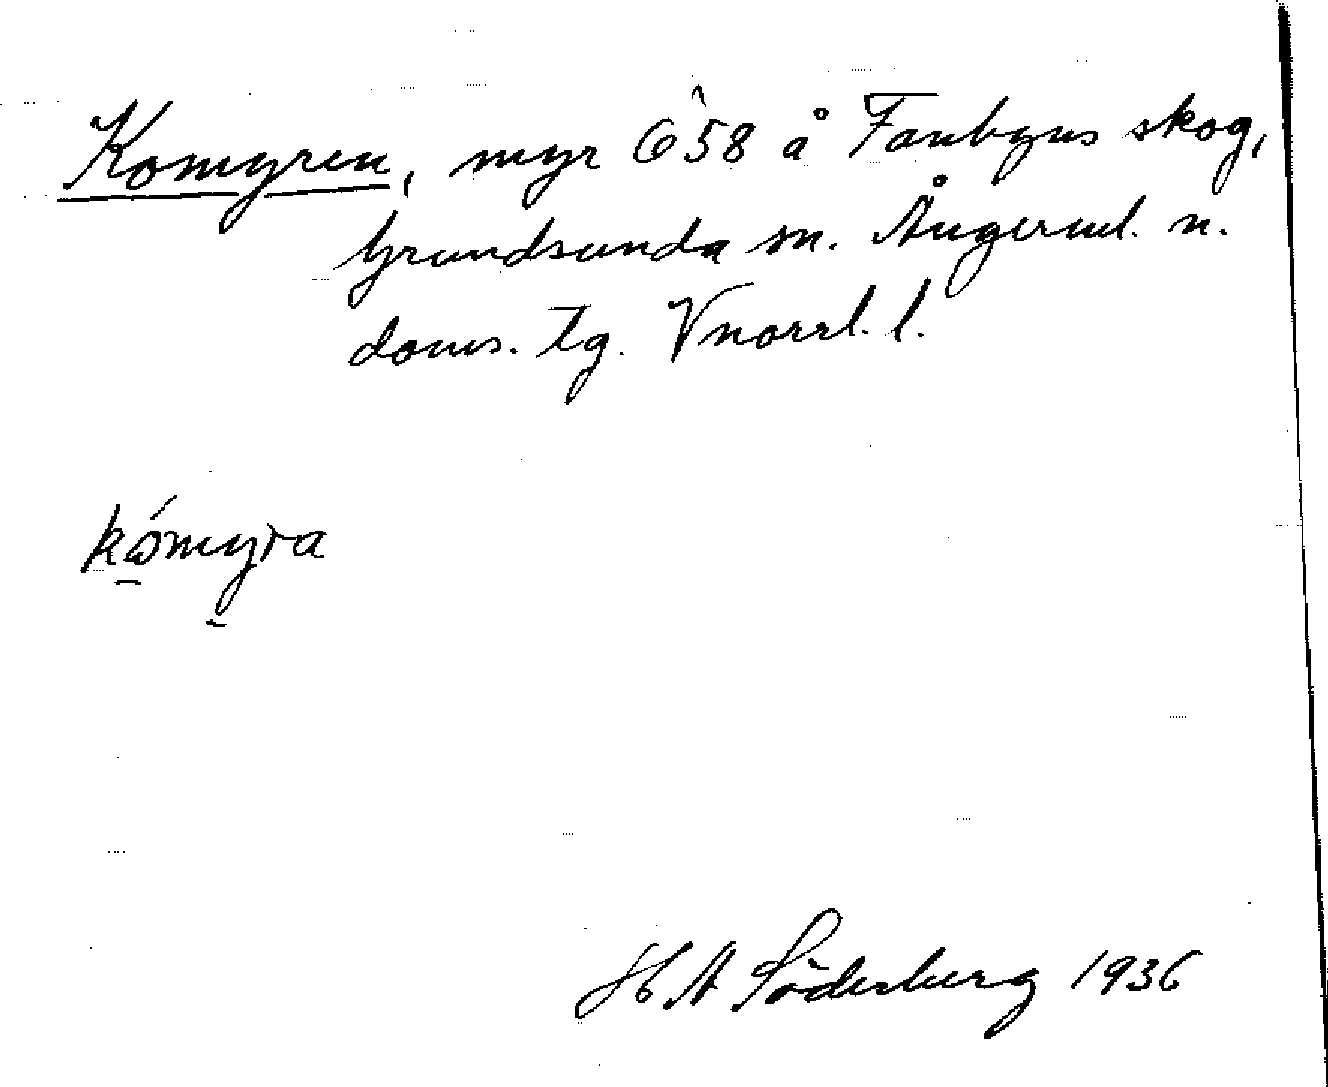 Komyren, myr 658 å Fanbyns skog,
Grundsunda sn. Ångerml. n.
doms. tg. Vnorrl. l.
kómyra
H A Söderberg 1936